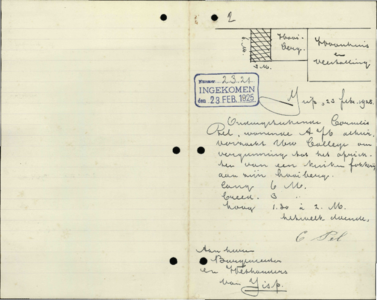 2
Hooi-
berg.
Woonhuis
en
veestalling
3 M.
Nummer 23.21.
INGEKOMEN
den 23 FEB. 1925
Jisp, 22 feb. 1925.
Ondergeteekende Cornelis
Pel, wonende A alhier,
verzoekt Uw College om
vergunning tot het oprich-
ten van een
aan zijn hooiberg.
lang 6 M.
breed 3
hoog 1.80 à 2 M.
hetwelk doende,
C Pel
Aan heeren
Burgemeester
en Wethouders
van Jisp.